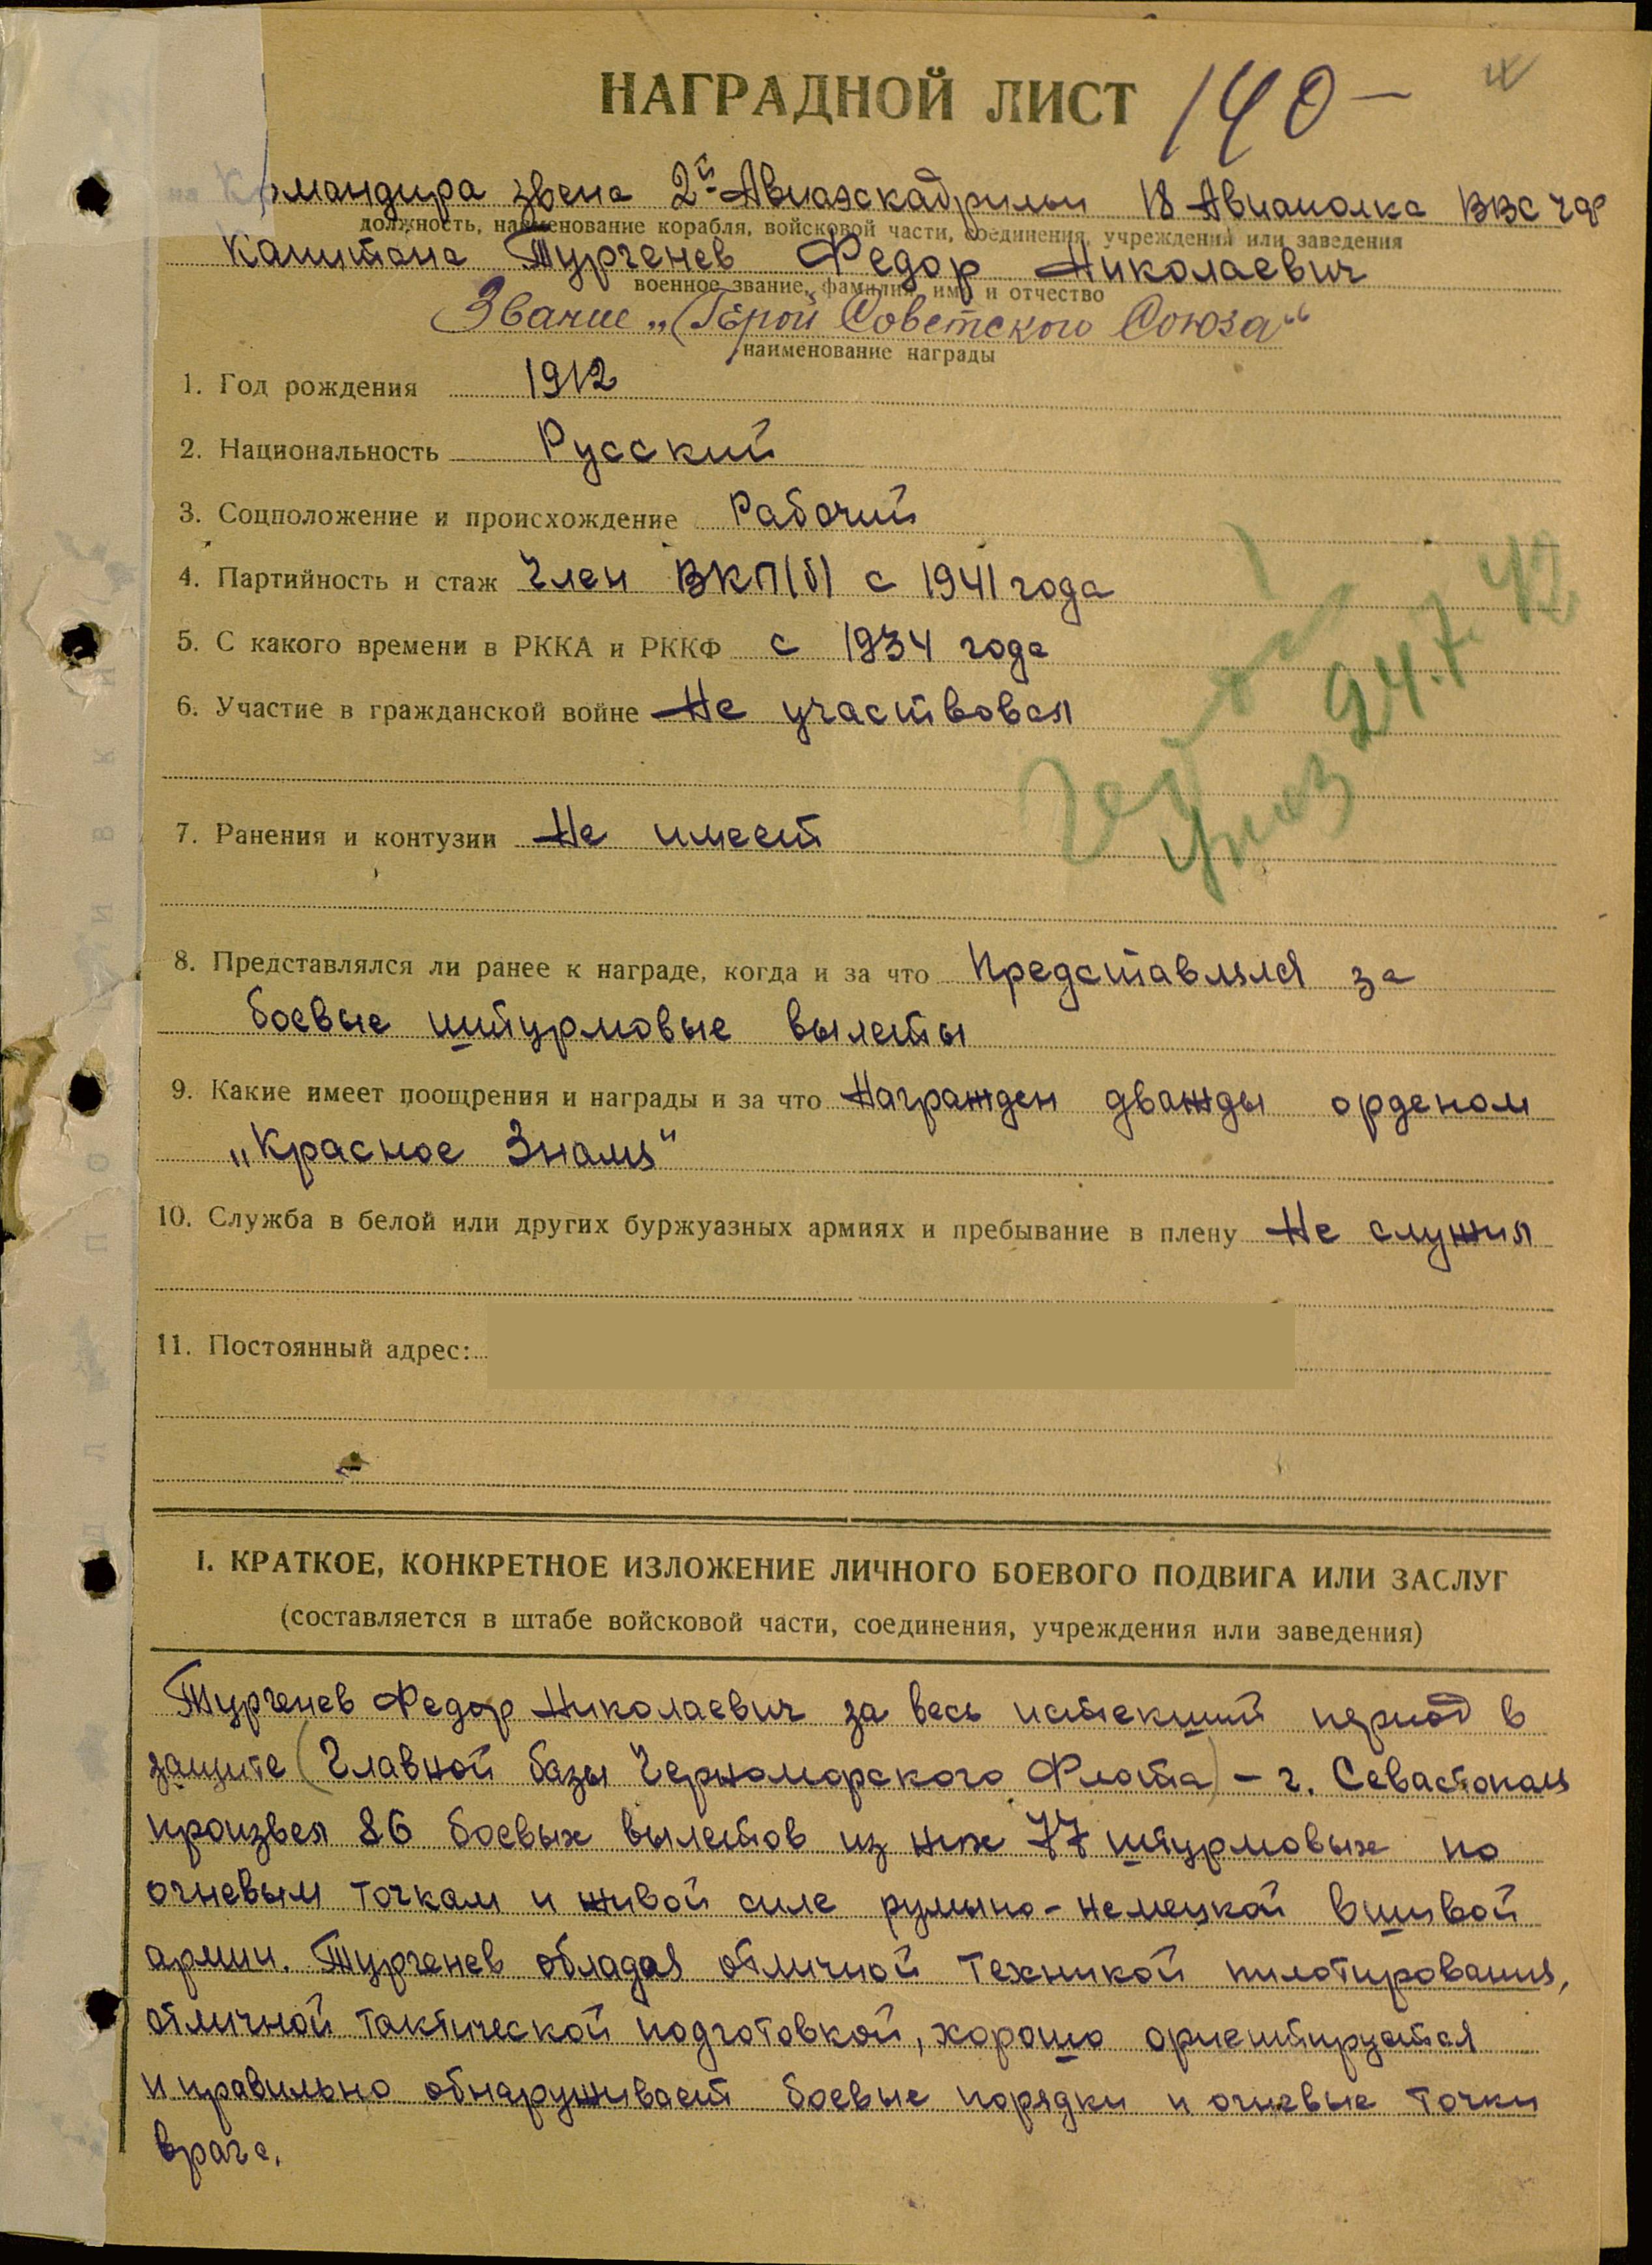 НАГРАДНОЙ ЛИСТ 140 –
Командира звена 2й Авиаэскадрильи 18 Авиаполка ВВС ЧФ
должность, наименование корабля, войсковой части, соединения, учреждения или заведения
Капитана Тургенев Федор Николаевич
военное звание, фамилия, имя и отчество
Звание „Герой Советского Союза“
наименование награды
1. Год рождения 1912
2. Национальность Русский
3. Соцположение и происхождение Рабочий
4. Партийность и стаж Член ВКП(б) с 1941 года
5. С какого времени в РККА и РККФ с 1934 года
6. Участие в гражданской войне Не участвовал
24.7.42
Указ
7. Ранения и контузии Не имеет
8. Представлялся ли ранее к награде, когда и за что Представлялся за
боевые штурмовые вылеты
9. Какие имеет поощрения и награды и за что Награжден дважды орденом
„Красное Знамя“
10. Служба в белой или других буржуазных армиях и пребывание в плену Не служил
11. Постоянный адрес:
I. КРАТКОЕ, КОНКРЕТНОЕ ИЗЛОЖЕНИЕ ЛИЧНОГО БОЕВОГО ПОДВИГА ИЛИ ЗАСЛУГ
(составляется в штабе войсковой части, соединения, учреждения или заведения)
Тургенев Федор Николаевич за весь истекший период в
защите (Главной базы Черноморского Флота) – г. Севастополя
произвел 86 боевых вылетов из них 77 штурмовых по
огневым точкам и живой силе румыно-немецкой вшивой
армии. Тургенев обладая отличной техникой пилотирования,
отличной тактической подготовкой, хорошо ориентируется
и правильно обнаруживает боевые порядки и огневые точки
врага.